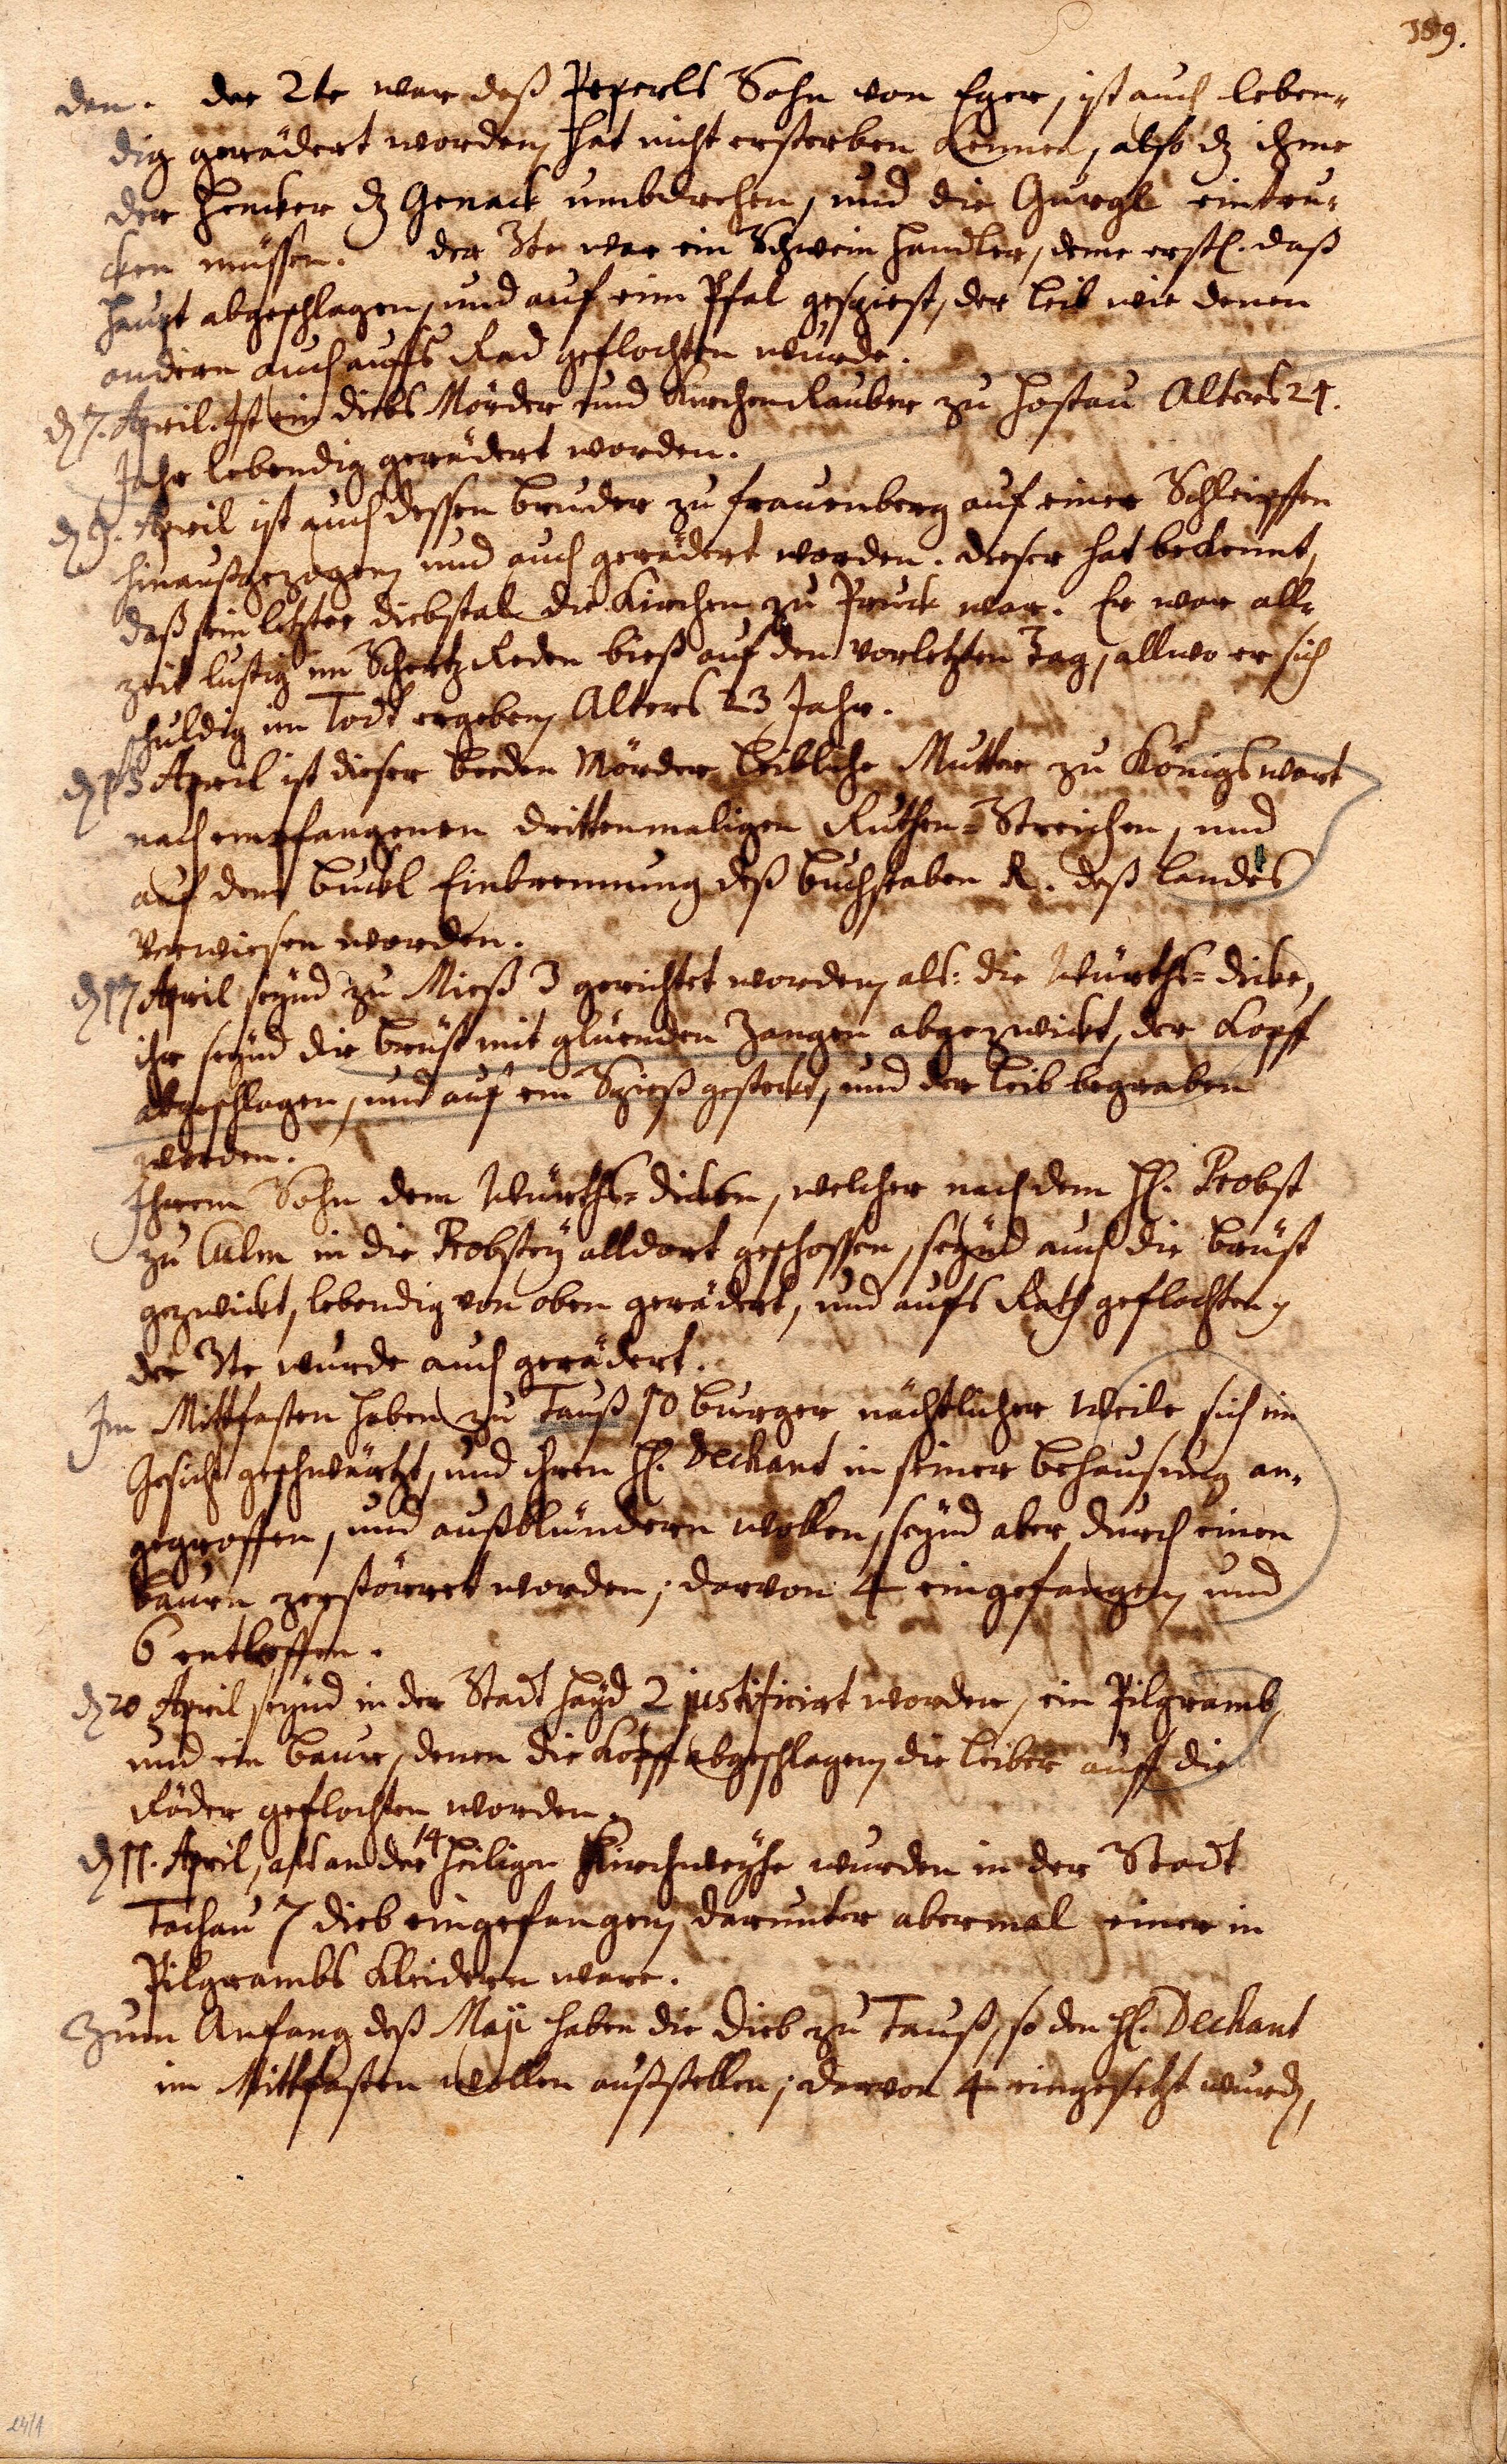 189.
den. der 2te war deß Peperls Sohn von Eger, ist auch leben-
dig gerädert worden, hat nicht ersterben kennen, also dz ihme
der Hencker dz Genack umbdrehen, und die Gurgl eintru-
cken müssen. der 3te war ein Schwein Handler, deme erstl. daß
Haupt abgeschlagen, und auf eim Pfal gespiest, der leib wie denen
andern auch auffs Rad geflochten wurde.
dn 7. April. Ist ein diebs Mörder und Kirchen Rauber zu Hostau Alters 24.
Jahr lebendig gerädert worden.
dn 9. April ist auch dessen bruder zu frauenberg auf einer Schleipffen
hinaußgezogen, und auch gerädert worden. dieser hat bekennt,
daß sein letzter diebstal die Kirchen zu Pruck war. Er war all-
zeit lustig im Schertz Reden bieß auf den vorletzten Tag, allwo er sich
schuldig im Todt ergeben, Alters 23 Jahr.
dn 13 April ist dieser beeden Mörder leibliche Mutter zu Königswart
nach empfangenen drittenmaligen Ruthen-Streichen, und
auf dem buckl Einbrennung deß buchstaben R. deß landes
verwiesen worden.
dn 17 April seynd zu Mieß 3 gerichtet worden, als: die Würths-dicke,
ihr seynd die brüst mit glüenden Zangen abgezwickt, der Kopff
abgeschlagen, und auf ein Spieß gesteckt, und der leib begraben
worden.
Ihrem Sohn dem Würths-dicken, welcher nach dem H. Probst
zu Culm in die Probstey alldort geschossen, seynd auch die brüst
gezwickt, lebendig von oben gerädert, und aufs Rath geflochten,
der 3te wurde auch gerädert.
Im Mittfasten haben zu Tauß 10 burger nächtlicher Weile sich im
Gesicht geschwärtzt, und ihren H. Dechant in seiner behausung an-
gegroffen, und außblündern wollen, seynd aber durch einen
baurn zerstörret worden; darvon 4 eingefangen, und
6 entloffen.
dn 20 April seynd in der Stadt Hayd 2 justificirt worden, ein Pilgramb,
und ein baur, denen die Köpff abgeschlagen, die leiber auff die
Räder geflochten worden.
dn 11. April, als an der 14 Heiligen Kirchweyhe wurden in der Stadt
Tachau 7 dieb eingefangen, darunter abermal einer in
Pilgrambs Kleidern ware.
Zum Anfang deß Maji haben die dieb zu Tauß, so den H. Dechant
im Mittfasten wollen außstellen; darvon 4 eingesetzt wurdn,
24/1